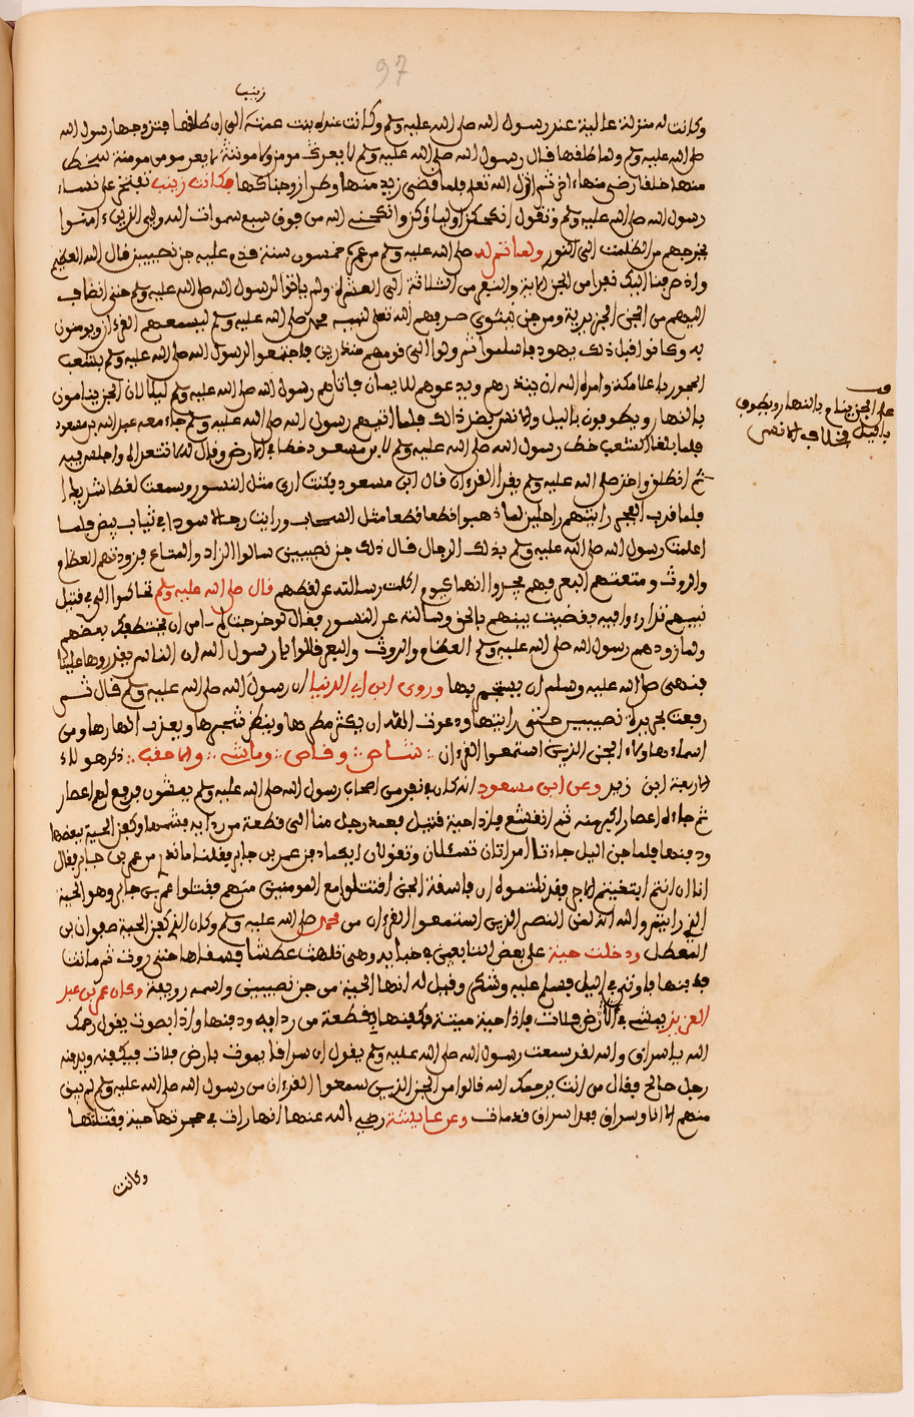 97
زينب
وكانت له منزلة عالية عند رسول الله صلى الله عليه وسلم وكانت عنده بنت عمته الى ان طلقها فتزوجها رسول الله
صلى الله عليه وسلم ولما طلقها قال رسول الله صلى الله عليه وسلم لا يعرك مومن ولا مومنة
منها خلقا رضي منها ءاخر ثم انزل الله تعلى فلما قضى زيد منها وطرا زوجناكها فكانت زينب تفتخر على نساء
رسول الله صلى الله عليه وسلم وتقول انكحكن اولياؤكن وانكحني الله من فوق سبع سموات الله ولي الذين ءامنوا
يخرجهم من الظلمت الى النور ولما تم له صلى الله عليه وسلم من عمره خمسون سنة قدم عليه جن نصيبين قال الله العظيم
واذ صرفنا اليك نفرا من الجن الاية والنفر من الثلاثة الى العشرة ولم ياتوا لرسول الله صلى الله عليه وسلم حتى انضاف
اليهم من الجن الجزيرية ومن جن نينوى صرفهم الله تعلى لنبيه محمد صلى الله عليه وسلم ليسمعهم القرءان ويومنون
به وكانوا قبل ذلك يهود فاسلموا ثم ولوا الى قومهم منذرين فاجتمعوا لرسول الله صلى الله عليه وسلم بشعب
الحجور باعلا مكة وامره الله ان ينذرهم ويدعوهم للايمان فاتاهم رسول الله صلى الله عليه وسلم ليلا لان الجن ينامون
بالنهار ويطوفون بالليل والانس بضد ذلك فلما اتيهم رسول الله صلى الله عليه وسلم جاء معه عبد الله بن مسعود
قف
على الجن ينام بالنهار ويطوف
بالليل بخلاف الانس
فلما بلغا الشعب خط رسول الله صلى الله عليه وسلم لابن مسعود خطا في الارض وقال له لا تتعداه واجلس فيه
ثم انطلق واخذ صلى الله عليه وسلم يقرا القرءان قال ابن مسعود فكنت ارى مثل النسور وسمعت لغطا شديدا
فلما قرب الفجر رايتهم راحلين لما ذهبوا قطعا قطعا مثل السحاب ورايت رجالا سودا في ثياب بيض فلما
اعلمت رسول الله صلى الله عليه وسلم بذلك الرجال قال ذلك جن نصيبين سالوا الزاد والمتاع فزودتهم العظام
والروث ومتعتهم البعر فهم يجدوا انها كيوم اكلت رسالته عن لغطهم قال صلى الله عليه وسلم تحاكموا الي في قتيل
بينهم تداروا فيه فقضيت بينهم بالحق وسالته عن النسور فقال لو خرجت لم تامن ان يختطفك بعضهم
ولما زودهم رسول الله صلى الله عليه وسلم العظام والروث والبعر قالوا يا رسول الله ان الناس يقذرونها علينا
فنهى صلى الله عليه وسلم ان يستجمر بها وروى ابن ابي الدنيا ان رسول الله صلى الله عليه وسلم قال ثم
رفعت لي جزيرة نصيبين حتى رايتها ودعوت الله ان يكثر مطرها وينضر شجرها ويعذب انهارها ومن
اسماء هاؤلاء الجن الذين استمعوا القرءان شاص وفاص وماش والاحقب ذكر هولاء
الاربعة ابن زبر وعن ابن مسعود انه كان في نفر من اصحاب رسول الله صلى الله عليه وسلم يمشون فرفع لهم اعصار
ثم جاءه اعصار اكبر منه ثم انقشع فاذا حية قتيل فعمد رجل منا الى قطعة من ردايه فشقها وكفن الحية ببعضها
ودفنها فلما جن اليل جاءتنا امراتان تسئلان وتقولان ايكم دفن عمر بن جابر فقلنا ما ندري من عمر بن جابر فقال
انا ان انتم ابتغيتم الاجر فقد نلتموه ان فاسقة الجن اقتتلوا مع المومنين منهم فقتلوا عمر بن جابر وهو الحية
الذي رايتم والله انه لمن النفر الذين استمعوا القرءان من محمد صلى الله عليه وسلم وكان الذي كفن الحية صفوان بن
المعطل ودخلت حية على بعض التابعين في خبايه وهي تلهث عطشا فسقاها حتى رويت ثم ماتت
فدفنها فاوتي في اليل فسلم عليه وشكر وقيل له انها الحية من جن نصيبين واسمه زوبعة وكان عمر بن عبد
العزيز يمشي في الارض فلات فاذا حية ميتة فكفنها بقطعة من ردايه ودفنها واذا بصوت يقول رحمك
الله يا سراق والله لقد سمعت رسول الله صلى الله عليه وسلم يقول ان سراقا يموت بارض فلات فيكفنه ويدفنه
رجل صالح فقال من انت يرحمك الله قالوا من الجن الذين سمعوا القرءان من رسول الله صلى الله عليه وسلم لم يبق
منهم الا انا وسراق وهذا سراق قد مات وعن عايشة رضي الله عنها انها رات في حجرتها حية فقتلتها
وكانت